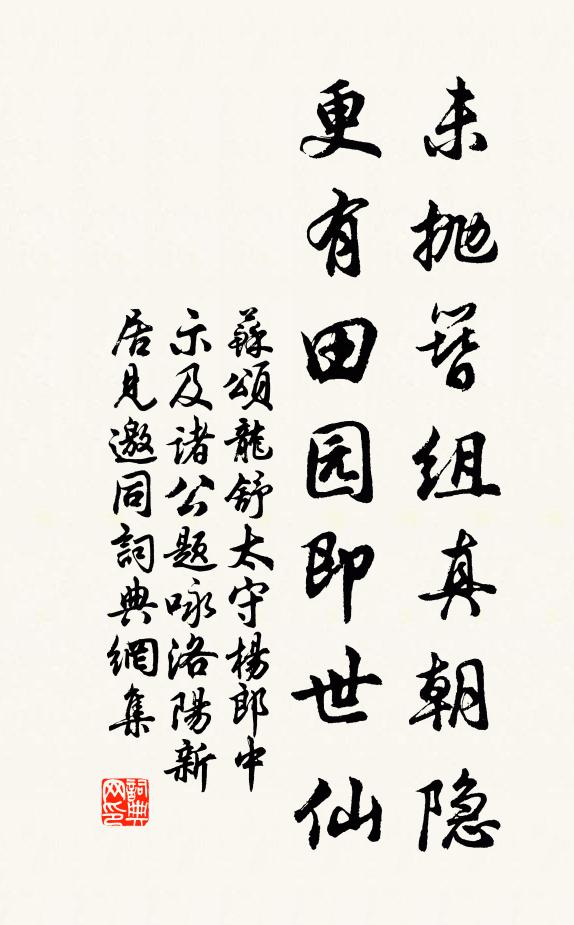 未抛簪组真朝隐
更有田园即世仙
蘇頌龍舒太守楊郎中
示及諸公题咏洛陽新
居見邀同詞典網集
詞典
网印